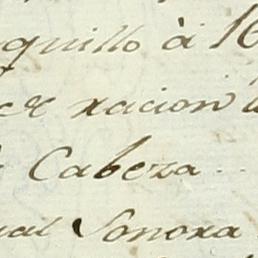 quillo à 16
xacion
Cabeza
ual Sonora